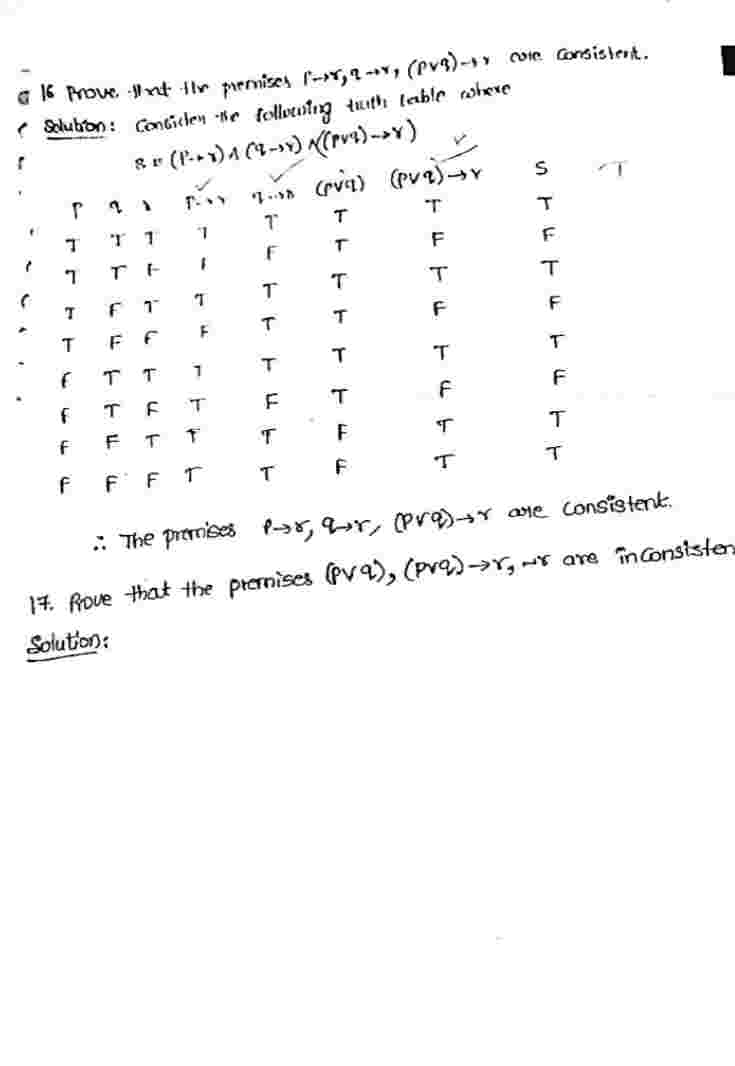 16 Prove that the premises P→r, q→r, (pvq)→r are Consistent.
Solution: Consider the following truth table where
S = (P→r) ∧ (q→r) ∧ ((pvq)→r)
P q r P→r q→r (pvq) (pvq)→r S T
T T T T T T T T
T T F F F T F F
T F T T T T T T
T F F F T T F F
F T T T T T T T
F T F T F T F F
F F T T T F T T
F F F T T F T T
∴ The premises P→r, q→r, (pvq)→r are consistent.
17. Prove that the premises (pvq), (pvq)→r, ~r are inconsisten
Solution: